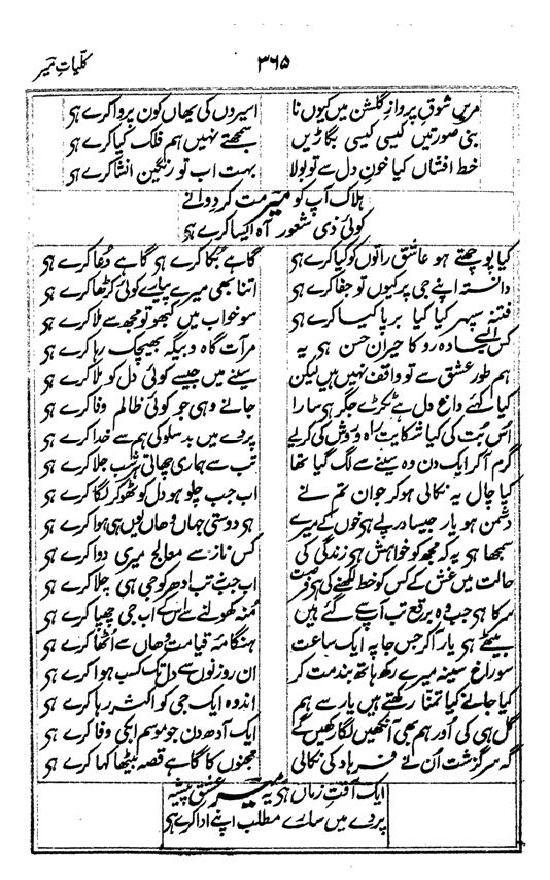 کلیاتِ میر
۳۶۵
مریں شوقِ پروازِ گلشن میں کیوں نا اسیروں کی یھاں کون پروا کرے ہی
بنی صورتیں کیسی کیسی بگاڑیں سمجھتے نہیں ہم فلک کیا کرے ہی
خط افشاں کیا خونِ دل سے تو بولا بہت اب تو رنگین انشا کرے ہی
ہلاک آپ کو میر مت کر دوانے
کوئی ذی شعور آہ ایسا کرے ہی
کیا پوچھتے ہو عاشق راتوں کو کیا کرے ہی گاہے بُکا کرے ہی گاہے دُعا کرے ہی
دانستہ اپنے جی پر کیوں تو جفا کرے ہی اتنا بھی میرے پیارے کوئی کڑھا کرے ہی
فتنہ سپہر کیا کیا برپا کیا کرے ہی سو خواب میں کبھو تو مجھ سے ملا کرے ہی
کس ایسے سادہ رو کا حیرانِ حسن ہی یہ مرآت گاہ و بیگہ بھیچک رہا کرے ہی
ہم طورِ عشق سے تو واقف نہیں ہیں لیکن سینے میں جیسے کوئی دل کو ملا کرے ہی
کیا کہئے داغ دل ہے ٹکڑے جگر ہی سارا جانے وہی جو کوئی ظالم وفا کرے ہی
اُس بُت کی کیا شکایت راہ و روش کی کریے پردے میں بدسلوکی ہم سے خدا کرے ہی
گرم آکر ایک دن وہ سینے سے لگ گیا تھا تب سے ہماری چھاتی ہر شب جلا کرے ہی
کیا چال یہ نکالی ہو کر جوان تم نے اب جب چلو ہو دل کو ٹھوکر لگا کرے ہی
دشمن ہو یار جیسا درپے ہی خوں کے میرے ہی دوستی جہاں وھاں یوں ہی ہوا کرے ہی
سمجھا ہی یہ کہ مجھ کو خواہش ہی زندگی کی کس ناز سے معالج میری دوا کرے ہی
حالت میں غش کے کس کو خط لکھنے کی ہی فرصت اب جب نہ تب اودھر کو جی ہی چلا کرے ہی
سرکا ہی جب وہ برقع تب آپ سے گئے ہیں مُنہ کھولنے سے اُس کے اب جی چھپا کرے ہی
بیٹھے ہی یار آکر جس جا پہ ایک ساعت ہنگامۂ قیامت وھاں سے اُٹھا کرے ہی
سوراخ سینہ میرے رکھ ہاتھ بند مت کر ان روزنوں سے دل تک کسبِ ہوا کرے ہی
کیا جانے کیا تمنا رکھتے ہیں یار سے ہم اندوہ ایک جی کو اکثر رہا کرے ہی
گل ہی کی اور ہم بھی آنکھیں لگا رکھیں گے ایک آدھ دن جو موسم ابکی وفا کرے ہی
گہ سرگزشت اُن نے فرہاد کی نکالی مجنوں کا گاہے قصہ بیٹھا کہا کرے ہی
ایک آفتِ زماں ہی یہ میر عشق پیشہ
پردے میں سارے مطلب اپنے ادا کرے ہی